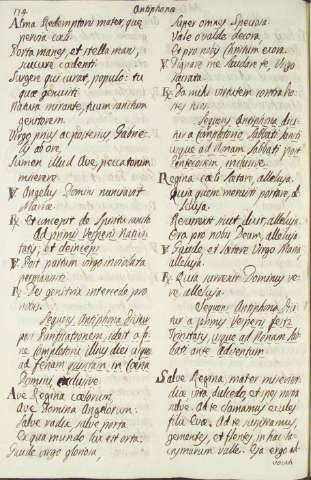 174
Antiphona
Alma Redemptoris mater, que
pervia cæli
Porta manes, et stella maris,
succure cadenti
Surgere qui curat, populo: tu
quæ genuisti
Natura mirante, tuum sanctum
genitorem
Virgo prius ac posterius Gabrie-
lis ab ore,
Sumens illud Ave, peccatorum
miserere
V Angelus Domini nuntiavit
Mariæ
R Et concepit de Spiritu sancto
Ad primas Vesperas Nativi-
tatis, et deinceps
V Post partum virgo inviolata
permansisti
R Dei genitrix intercede pro
nobis.
Sequens Antiphona dicitur
post Purificationem, idest a fi-
ne Completorii
ad feriam quintam in Cœna
Domini exclusive
Ave Regina cælorum,
Ave Domina Angelorum:
Salve radix, salve porta
Ex qua mundo lux est orta:
Gaude virgo gloriosa,
Super omnes Speciosa
Vale o valde decora,
Et pro nobis Christum exora.
V Dignare me laudare te, Virgo
sacrata
R Da mihi virtutem contra ho-
stes tuos
Sequens Antiphona dici-
tur a Completorio, Sabbati sancti
usque ad Nonam Sabbati post
Pentecosten, inclusive
Regina cæli lætare, alleluja.
Quia quem meruisti portare, al-
leluja.
Resurrexit sicut dixit, alleluja.
Ora pro nobis Deum, alleluja.
V Gaude, et lætare Virgo Maria,
alleluja.
R Quia surrexit Dominus ve-
re alleluja.
Sequens Antiphona dici-
tur a primis Vesperis festi
Trinitatis usque ad Nonam Sab-
bati ante Adventum
Salve Regina, mater misericor-
diæ vita, dulcedo, et spes nostra
salve. Ad te clamamus exules
filii Evæ. Ad te suspiramus,
gementes, et flentes in hac la-
crymarum valle. Eja ergo ad-
vocata